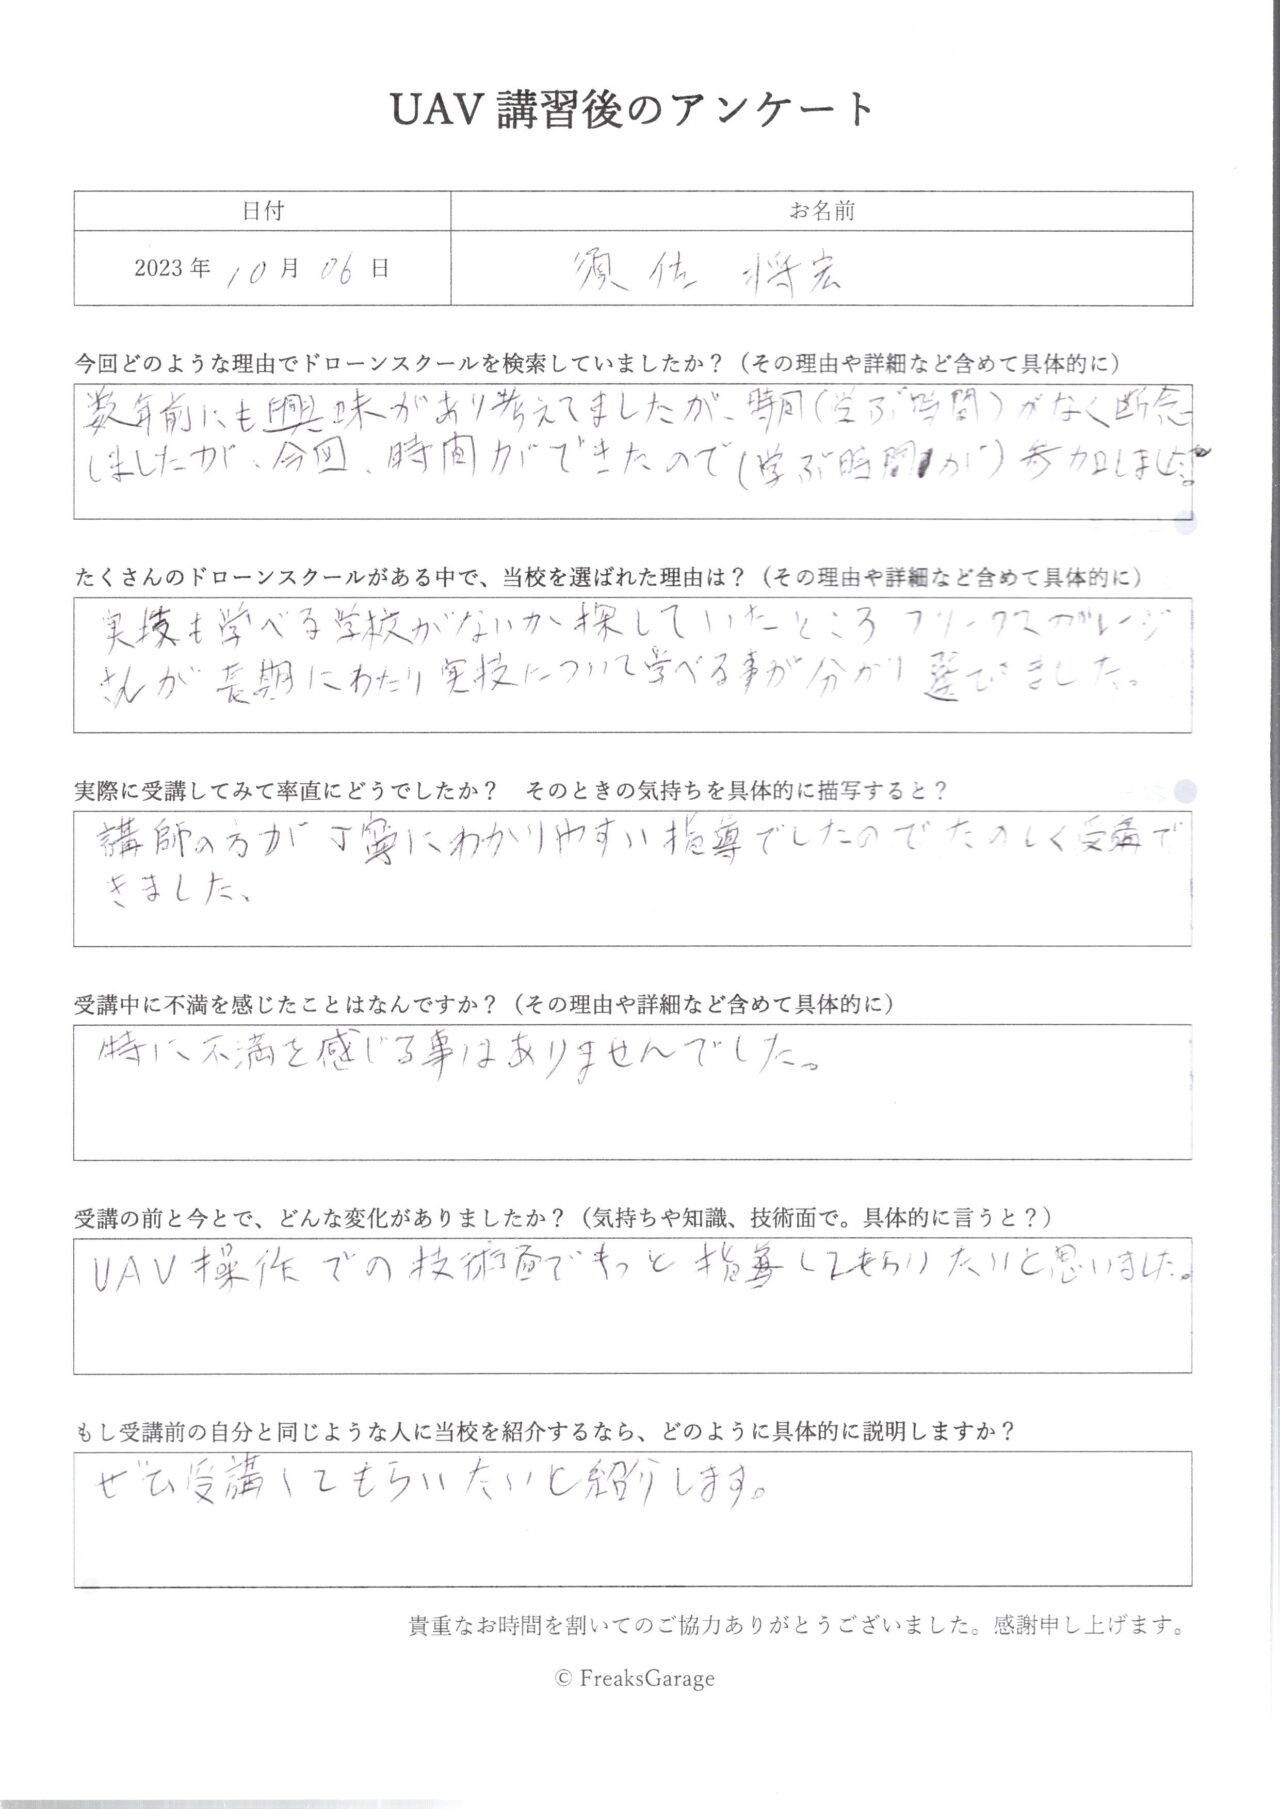 UAV 講習後のアンケート
日付 お名前
2023 年 10 月 06 日 須佐 将宏
今回どのような理由でドローンスクールを検索していましたか？（その理由や詳細など含めて具体的に）
数年前にも興味があり考えてましたが、時間(学ぶ時間)がなく断念
しましたが、今回、時間ができたので(学ぶ時間が)参加しました。
たくさんのドローンスクールがある中で、当校を選ばれた理由は？（その理由や詳細など含めて具体的に）
実技も学べる学校がないか探していたところフリークスガレージ
さんが長期にわたり実技について学べる事が分かり選びきました。
実際に受講してみて率直にどうでしたか？ そのときの気持ちを具体的に描写すると？
講師の方が丁寧にわかりやすい指導でしたのでたのしく受講で
きました、
受講中に不満を感じたことはなんですか？（その理由や詳細など含めて具体的に）
特に不満を感じる事はありませんでした。
受講の前と今とで、どんな変化がありましたか？（気持ちや知識、技術面で。具体的に言うと？）
UAV操作での技術面でもっと指導してもらいたいと思いました。
もし受講前の自分と同じような人に当校を紹介するなら、どのように具体的に説明しますか？
ぜひ受講してもらいたいと紹介します。
貴重なお時間を割いてのご協力ありがとうございました。感謝申し上げます。
© FreaksGarage